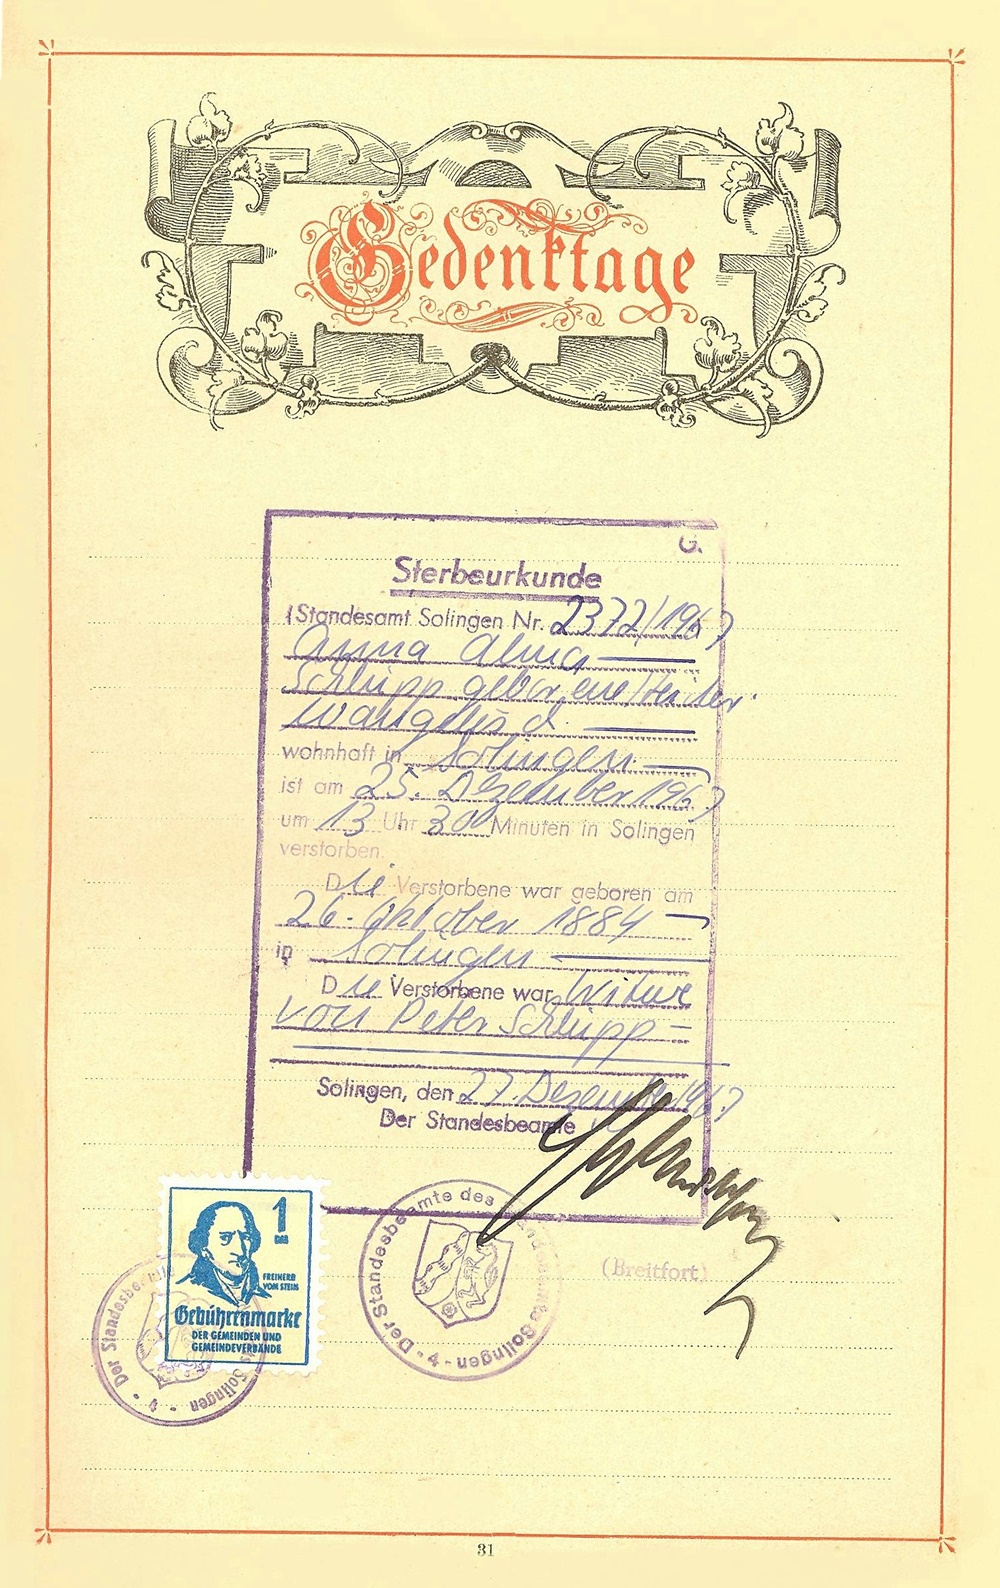 Gedenktage
G.
Sterbeurkunde
(Standesamt Solingen Nr. 2372/1967
Anna Alma
Schlupp geborene
wohnhaft in Solingen
ist am 25. Dezember 1967
um 13 Uhr 30 Minuten in Solingen
verstorben.
Die Verstorbene war geboren am
26. Oktober 1884
in Solingen
Die Verstorbene war Witwe
von Peter Schlupp
Solingen, den 27. Dezember 1967
Der Standesbeamte
1
DM
FREIHERR
VOM STEIN
Gebührenmarke
DER GEMEINDEN UND
GEMEINDEVERBÄNDE
Der Standesbeamte des Standesamts Solingen - 4 -
Der Standesbeamte Solingen - 4 -
(Breitfort)
31